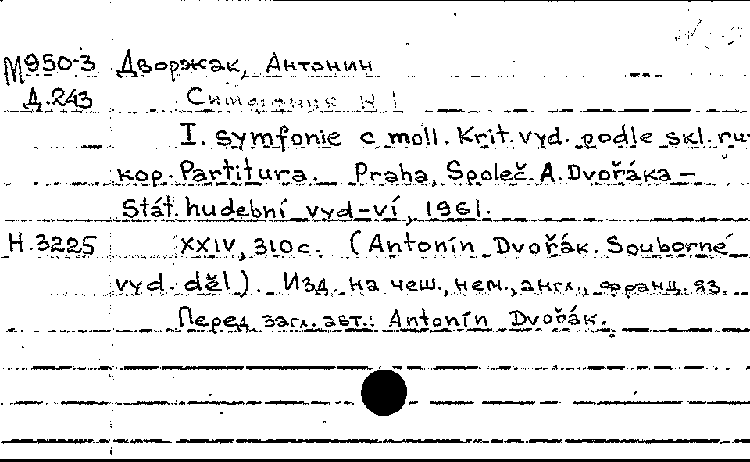 М950-3 Дворжак, Антонин
Д.243 Симфония № 1
I. symfonie c moll. Krit. vyd. podle skl. ru-
kop. Partitura. Praha, Společ. A. Dvořáka –
Stát. hudební vyd-ví, 1961.
Н.3225 XXIV, 310 с. (Antonín Dvořák. Souborné
vyd. děl). Изд. на чеш., нем., англ., франц. яз.
Перед загл. авт.: Antonín Dvořák.